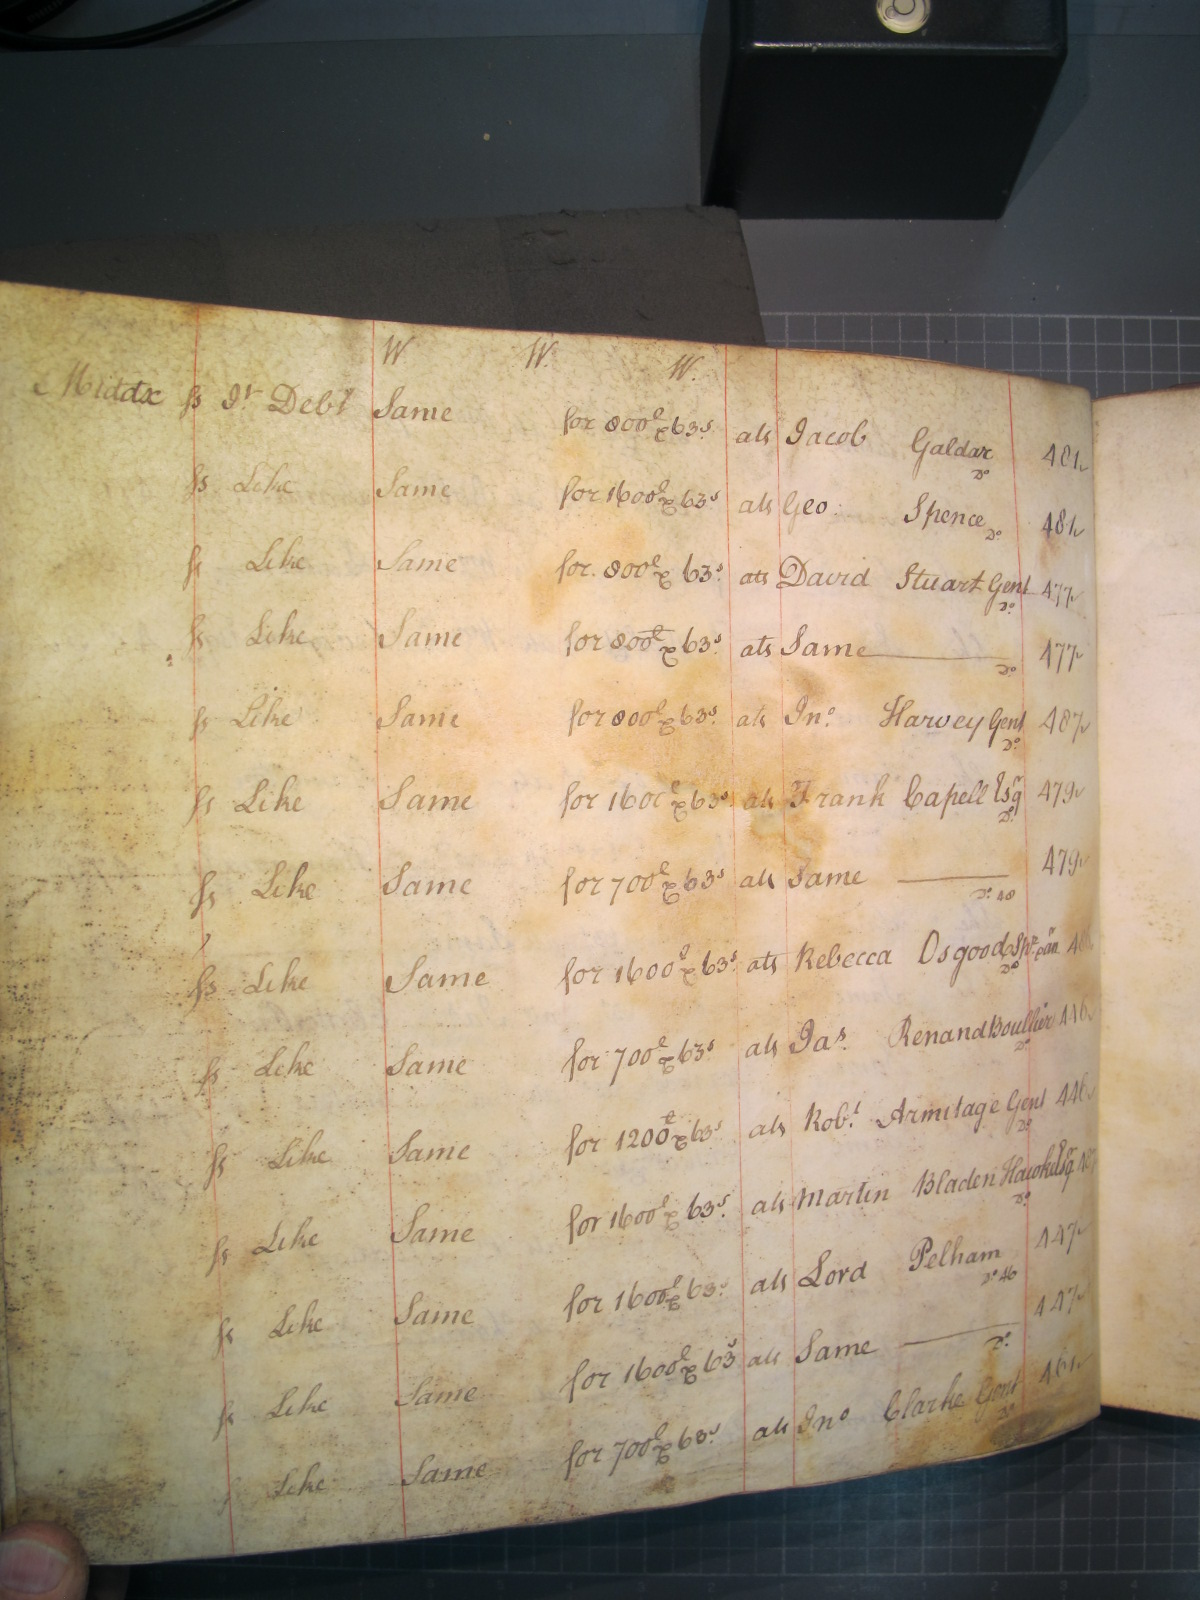 W W. W.
Middx ss Jr Debt Same for 800l & 63s. ats Jacob Galdar Do 481
ss Like Same for 1600l & 63s ats Geo: Spence Do 481
ss Like Same for. 800l & 63s. ats David Stuart Gent Do. 477
ss Like Same for 800l & 63s. ats Same Do. 477
ss Like Same for 800l & 63s. ats Jno. Harvey Gent Do. 487
ss Like Same for 1600l & 63s ats Frank Capell Esqr Do. 479
ss Like Same for 700l & 63s ats Same Do. 48 479
ss Like Same for 1600l & 63s ats Rebecca Osgood Do
ss Like Same for 700l & 63s ats Jas. Renand Boullier Do. 446
ss Like Same for 1200l & 63s ats Robt. Armitage Gent Do. 446
ss Like Same for 1600l & 63s. ats Martin Bladen Hawke Esqr Do.
ss Like Same for 1600l & 63s. ats Lord Pelham Do. 46 447
ss Like Same for 1600l & 63s ats Same Do. 447
Like Same for 700l & 63s. ats Jno Clarke Gent Do. 461